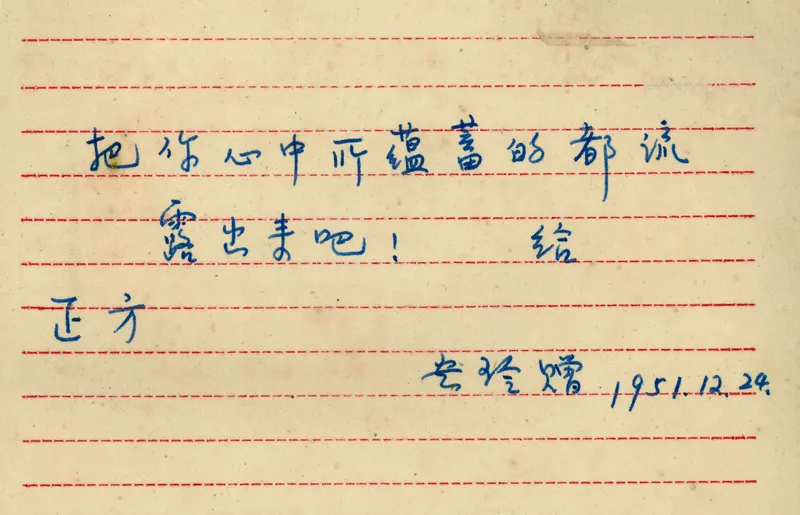 把你心中所蕴蓄的都流
露出来吧！ 给
正方
玲赠 1951.12.24.